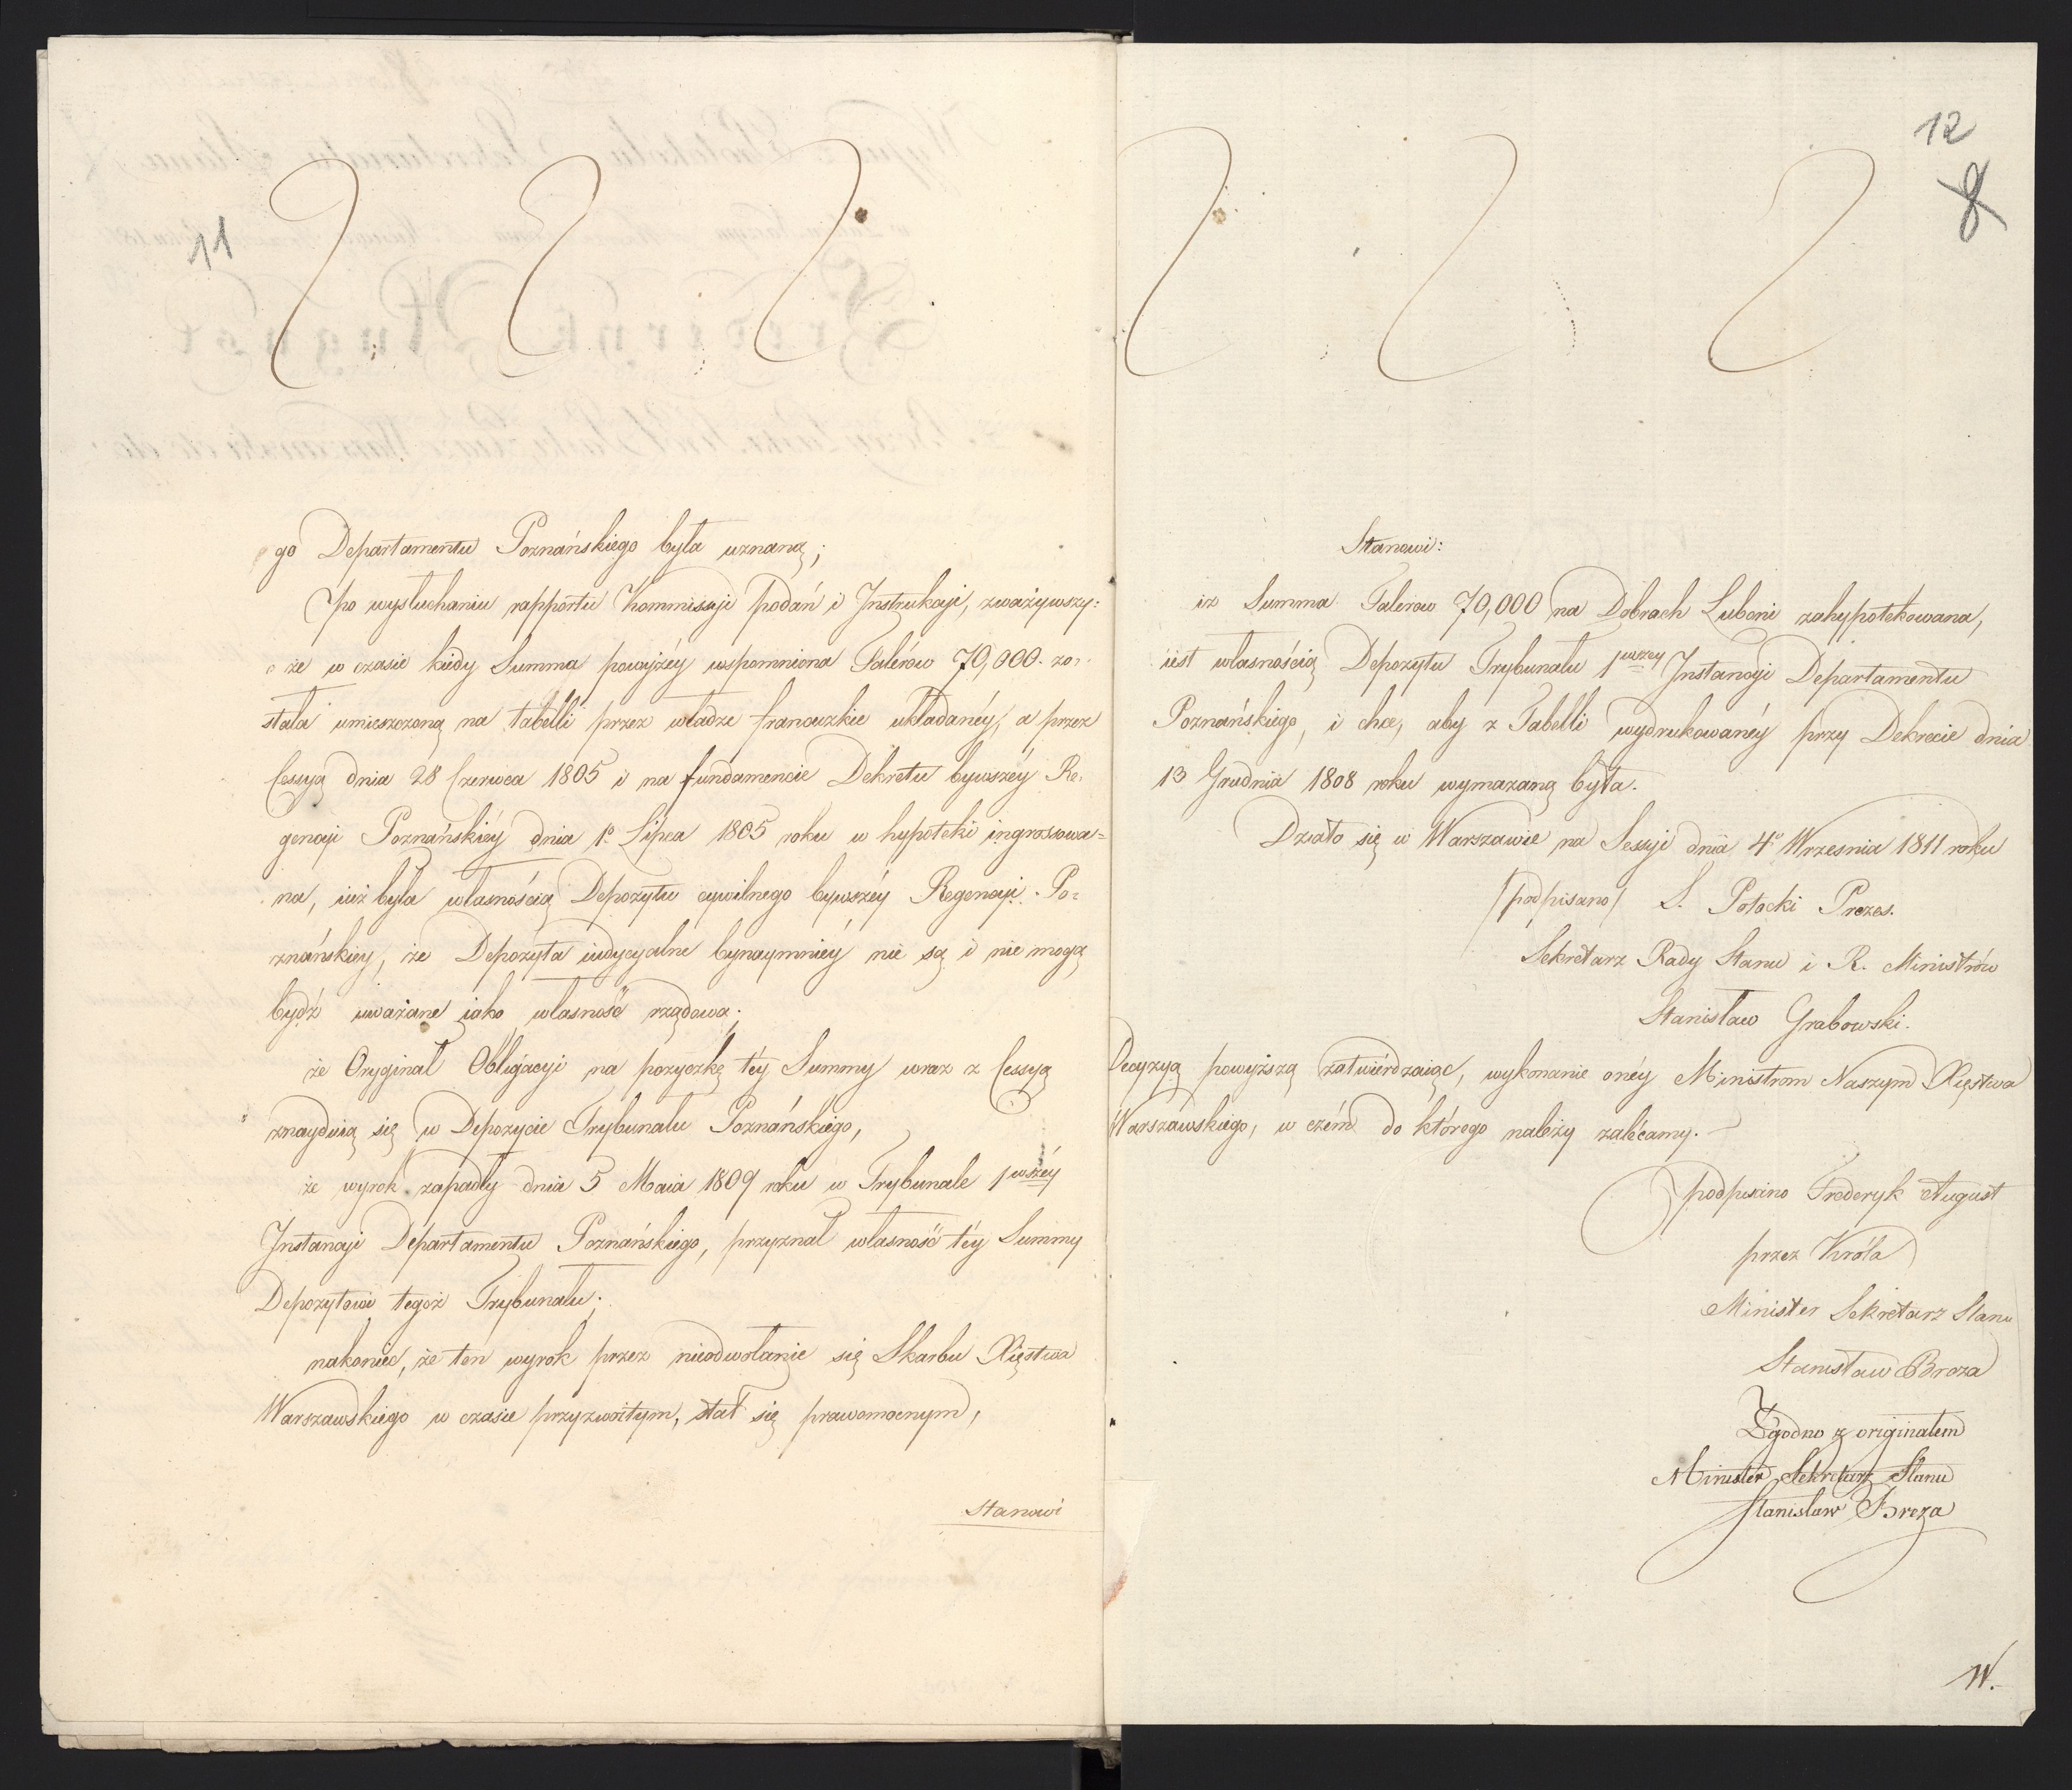 11
go Departamentu Poznańskiego była uznaną;
po wysłuchaniu rapportu Kommissyi podań i Instrukcyi, zważywszy:
że w czasie kiedy Summa powyżéy wspomniona Talérow 70,000. zo=
stała umieszczoną na tabelli przez władze francuzkie układanéy, a przez
Cessyą dnia 28 Czerwca 1805 i na fundamencie Dekretu bywszéy Re=
gencyi Poznańskiéy dnia 1º Lipca 1805 roku w hypoteki ingrossowa=
na, iuż była własnością Depozytu cywilnego bywszéy Regencyi Po=
znańskiey, że Depozyta iudycyalne bynaymniéy nie są i nie mogą
bydź uważane iako własność rządowa;
że Oryginał Obligacyi na pożyczkę téy Summy wraz z Cessyą
znayduią się w Depozycie Trybunału Poznańskiego,
że wyrok zapadły dnia 5 Maia 1809 roku w Trybunale 1wszéy
Instancyi Departamentu Poznańskiego, przyznał własność téy Summy
Depozytowi tegoż Trybunału;
nakoniec, że ten wyrok przez nieodwołanie się Skarbu Xięstwa
Warszawskiego w czasie przyzwoitym, stał się prawomocnym,
Stanowi
12
8
Stanowi:
iż Summa Talerow 70,000 na Dobrach Luboni zahypotekowana,
iest własnością Depozytu Trybunału 1wszey Instancyi Departamentu
Poznańskiego, i chce, aby z Tabelli wydrukowanéy przy Dekrecie dnia
13 Grudnia 1808 roku wymazaną była.
Działo się w Warszawie na Sessyi dnia 4º Wrzesnia 1811 roku
/podpisano/ S. Potocki Prezes.
Sekretarz Rady Stanu i R. Ministrów
Stanisław Grabowski.
Decyzyą powyższą zatwiérdzaiąc, wykonanie onéy Ministrom Naszym Xięstwa
Warszawskiego, w czém do którego należy zalécamy.
podpisano Frederyk August
przez Króla
Minister Sekretarz Stanu
Stanisław Breza
Zgodno z originałem
Minister Sekretarz Stanu
Stanisław Breza
W.